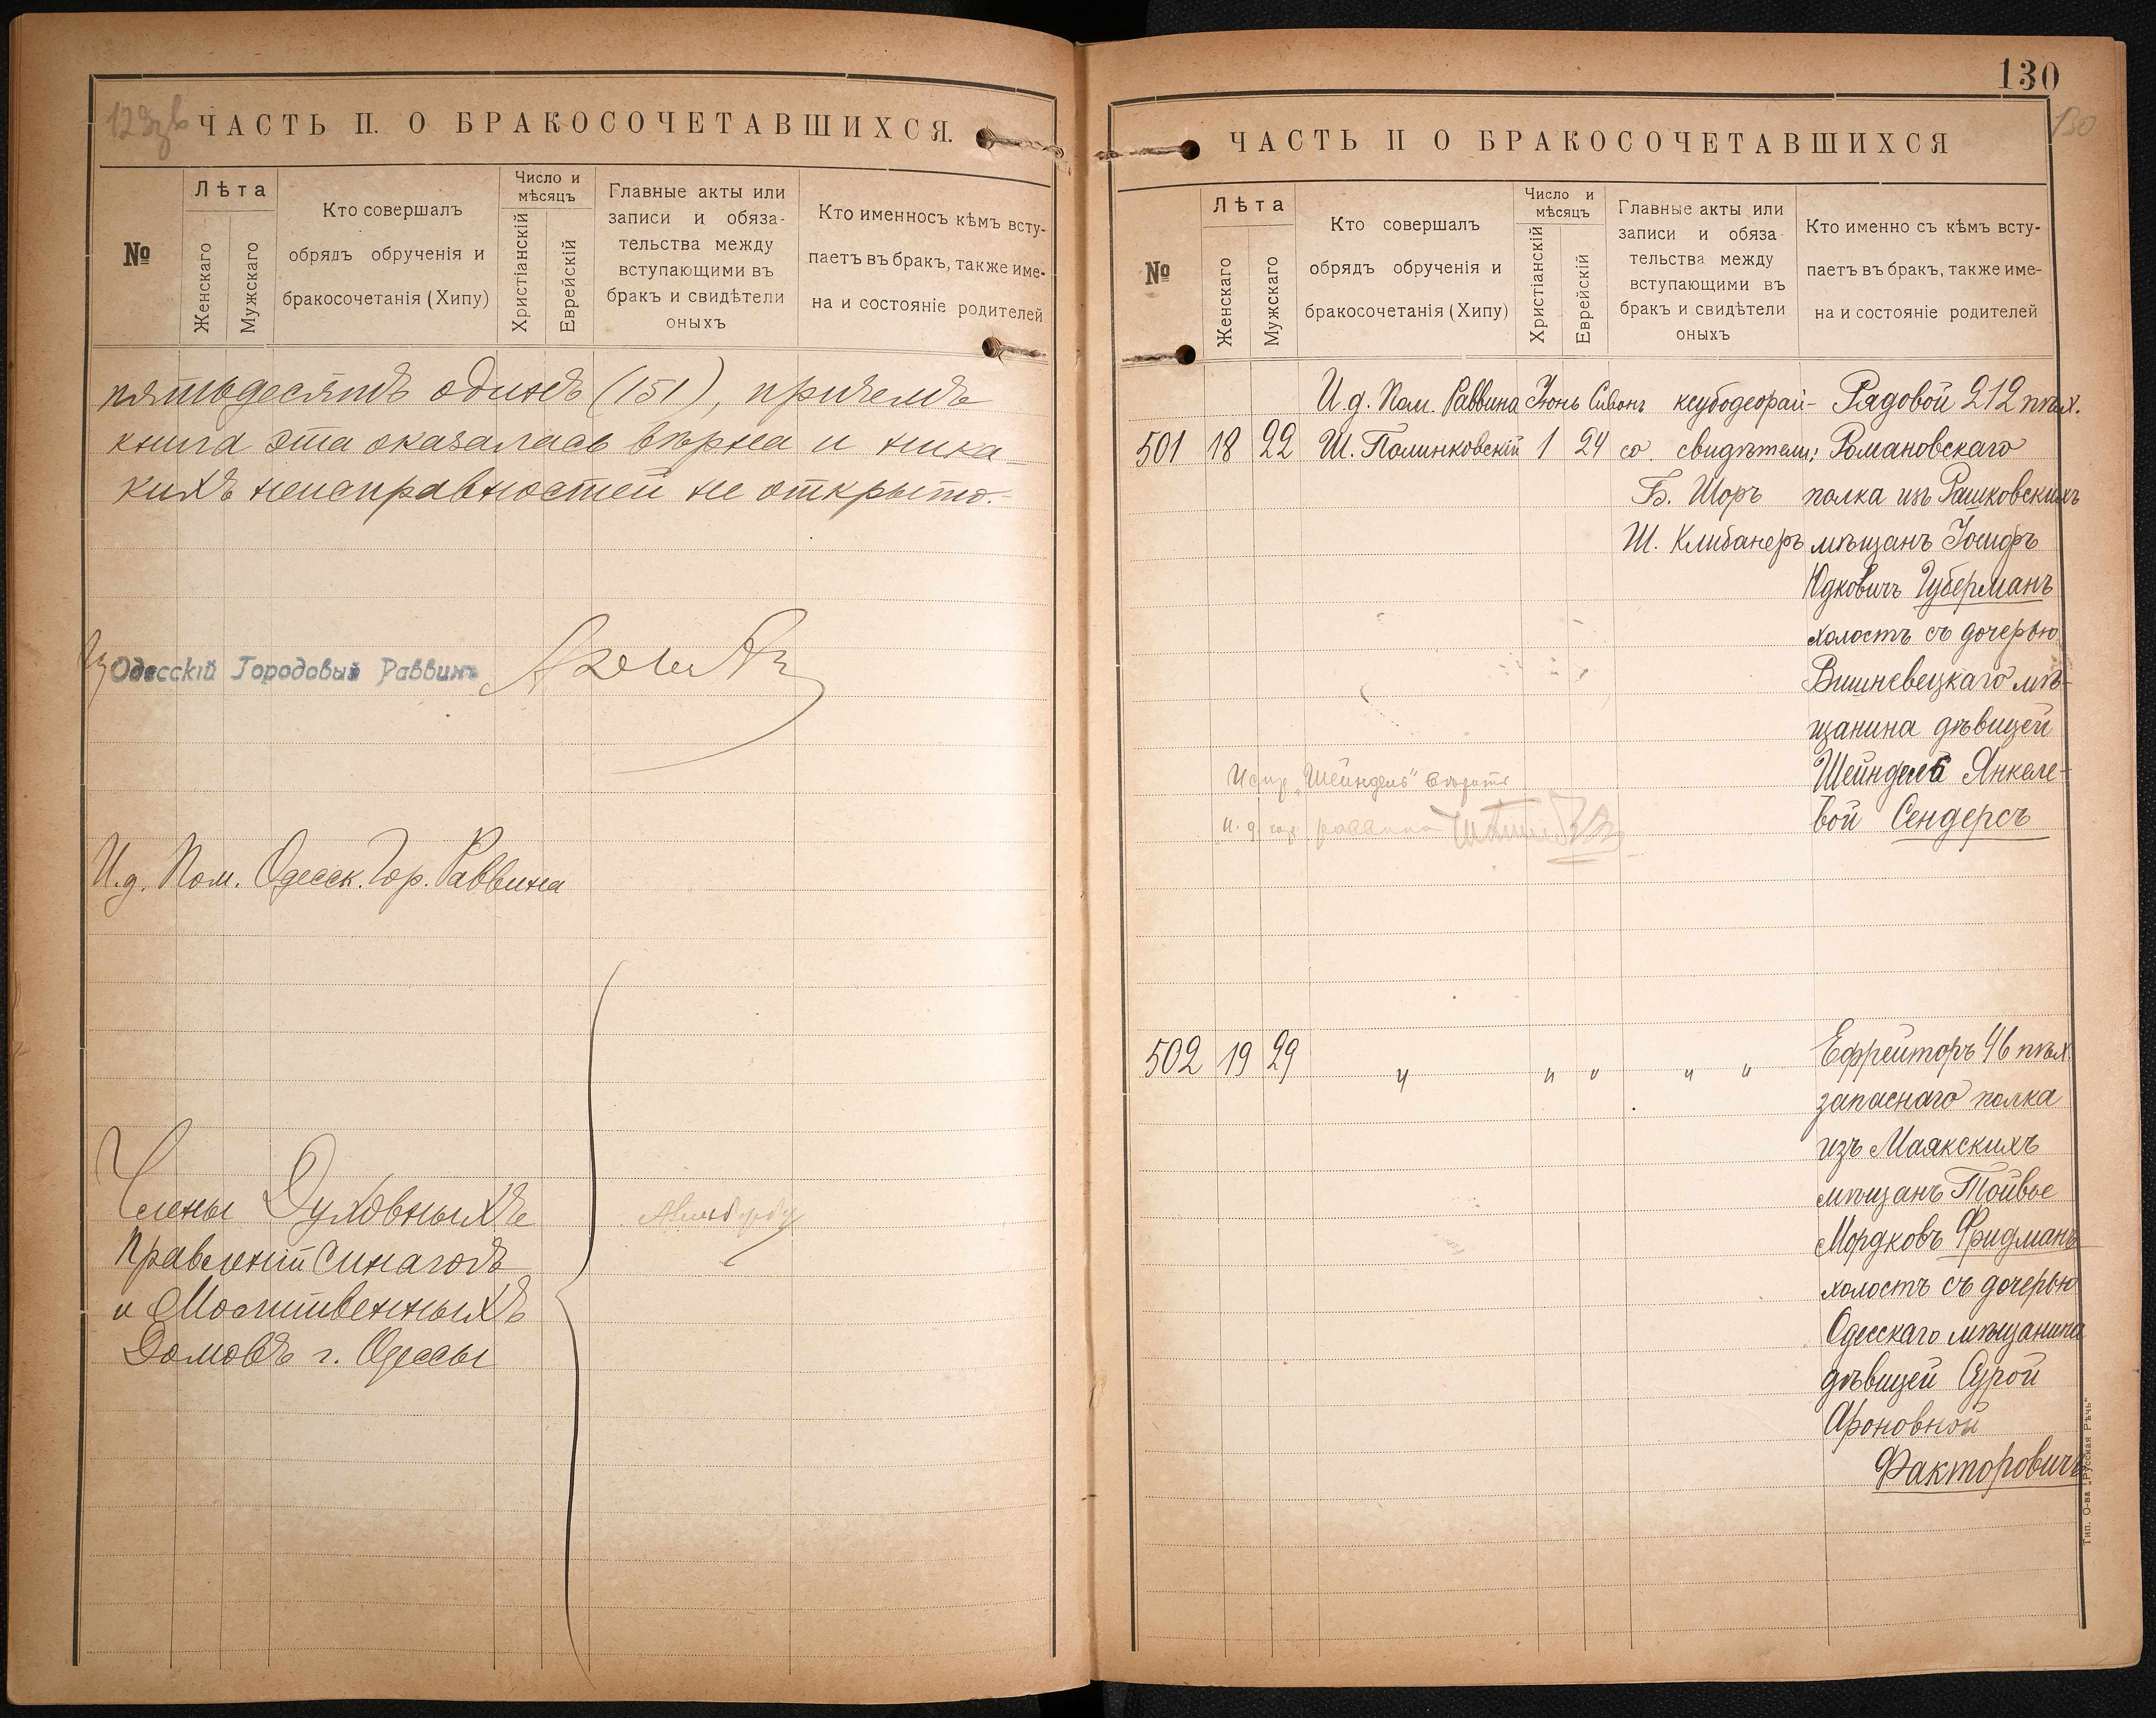 129 зв
ЧАСТЬ II. О БРАКОСОЧЕТАВШИХСЯ.
№
Лѣта
Женскаго
Мужскаго
Кто совершалъ
обрядъ обрученія и
бракосочетанія (Хипу)
Число и
мѣсяцъ
Христіанскій
Еврейскій
Главные акты или
записи и обяза-
тельства между
вступающими въ
бракъ и свидѣтели
оныхъ
Кто именносъ кѣмъ всту-
паетъ въ бракъ, также име-
на и состояніе родителей
пятьдесятъ одинъ (151), причемъ
книга эта оказалась вѣрна и ника-
кихъ неисправностей не открыто.
Одесскій Городовый Раввинъ
И.д. Пом. Одесск. Гор. Раввина
Члены Духовныхъ
Правленій Синагогъ
и Молитвенныхъ
Домовъ г. Одессы
130
130
ЧАСТЬ II О БРАКОСОЧЕТАВШИХСЯ
№
Лѣта
Женскаго
Мужскаго
Кто совершалъ
обрядъ обрученія и
бракосочетанія (Хипу)
Число и
мѣсяцъ
Христіанскій
Еврейскій
Главные акты или
записи и обяза-
тельства между
вступающими въ
бракъ и свидѣтели
оныхъ
Кто именно съ кѣмъ всту-
паетъ въ бракъ, также име-
на и состояніе родителей
И.д. Пом. Раввина Іюнь Сивонъ ксубодеорай- Рядовой 212 пѣх.
501 18 22 Ш. Полинковскій 1 24 со свидѣтели: Романовскаго
Б. Шоръ полка изъ Рашковскихъ
Ш. Клибанеръ мѣщанъ Іосифъ
Юдковичъ Губерманъ
холостъ съ дочерью
Вишневецкаго мѣ-
щанина дѣвицей
Шейндель Янкеле-
вой Сендерсъ
Испр. „Шейндель" вѣрить
И. д. гор. раввина
502 19 29 " " " " " Ефрейторъ 46 пѣх.
запаснаго полка
изъ Маякскихъ
мѣщанъ Тойвье
Мордковъ Фридманъ
холостъ съ дочерью
Одесскаго мѣщанина
дѣвицей Сурой
Ароновной
Факторовичъ
Тип. О-ва „Русская Рѣчь"